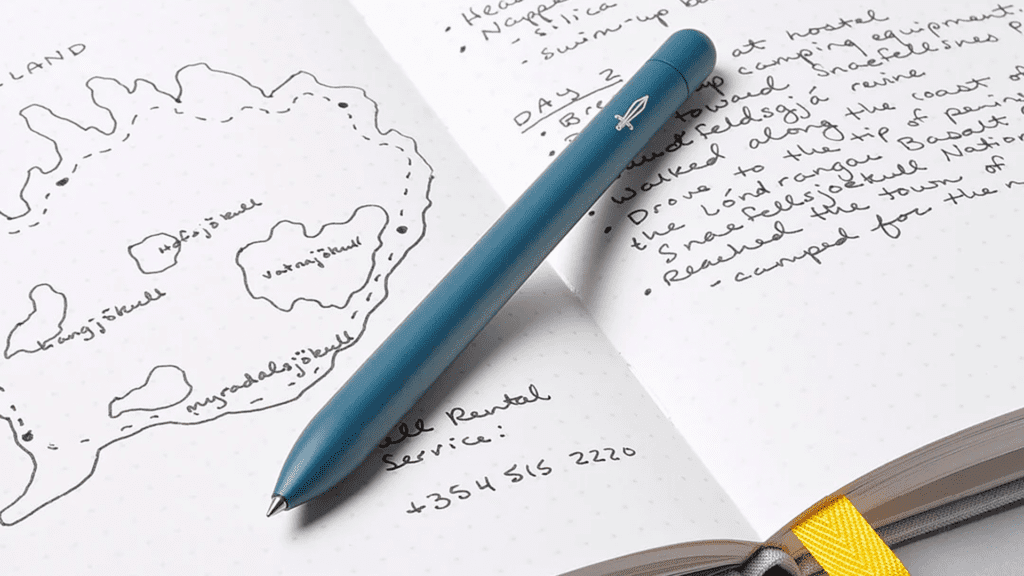 LAND
Hofsjökull
Vatnajökull
Langjökull
myradalsjökull
Rental
Service:
+354 515 2220
- silica
- swim-up
DAY 2
at hostel
camping equipment
toward Snaefellsnes
feldsgjá ravine
• Walked along the coast of
• Drove to the tip of
the Lóndrangar Basalt
Snaefellsjoekull
• Reached the town of
- camped for the